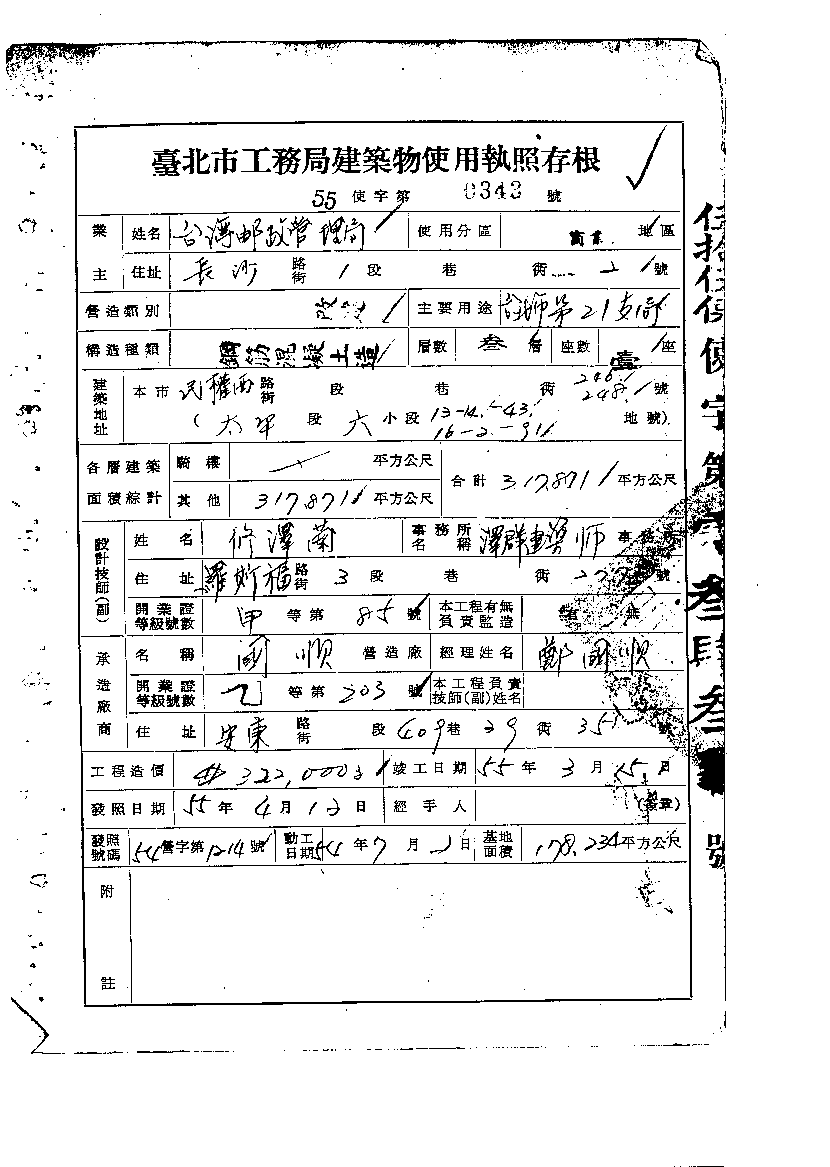 臺北市工務局建築物使用執照存根
55 使字第 0343 號
業主 姓名 台灣郵政管理局 使用分區 商業 地區
住址 長沙 路街 1 段 巷 衖 21 號
營造類別 改造 主要用途 第21支局
構造種類 鋼筋混凝土造 層數 叁 層 座數 壹 座
建築地址 本市 民權西 路街 段 巷 衖 246. 248. 號
(太平 段 六 小段 13-14. -43. 16-2. -91 地號)
各層建築面積綜計 騎樓 平方公尺 合計 317.871 平方公尺
其他 317.871 平方公尺
設計技師(副) 姓名 修澤蘭 事務所名稱 澤群建築師 事務所
住址 羅斯福 路街 3 段 巷 衖 號
開業證等級號數 甲 等第 85 號 本工程有無負責監造 有 無
承造廠商 名稱 國順 營造廠 經理姓名 鄭國順
開業證等級號數 乙 等第 203 號 本工程負責技師(副)姓名
住址 安東 路街 段 409 巷 29 衖 35 號
工程造價 322,000 竣工日期 55 年 3 月 15 日
發照日期 55 年 4 月 12 日 經手人 (簽章)
發照號碼 54 營字第 1214 號 動工日期 54 年 7 月 日 基地面積 178.234 平方公尺
附註
伍拾伍使字第零叁肆叁號